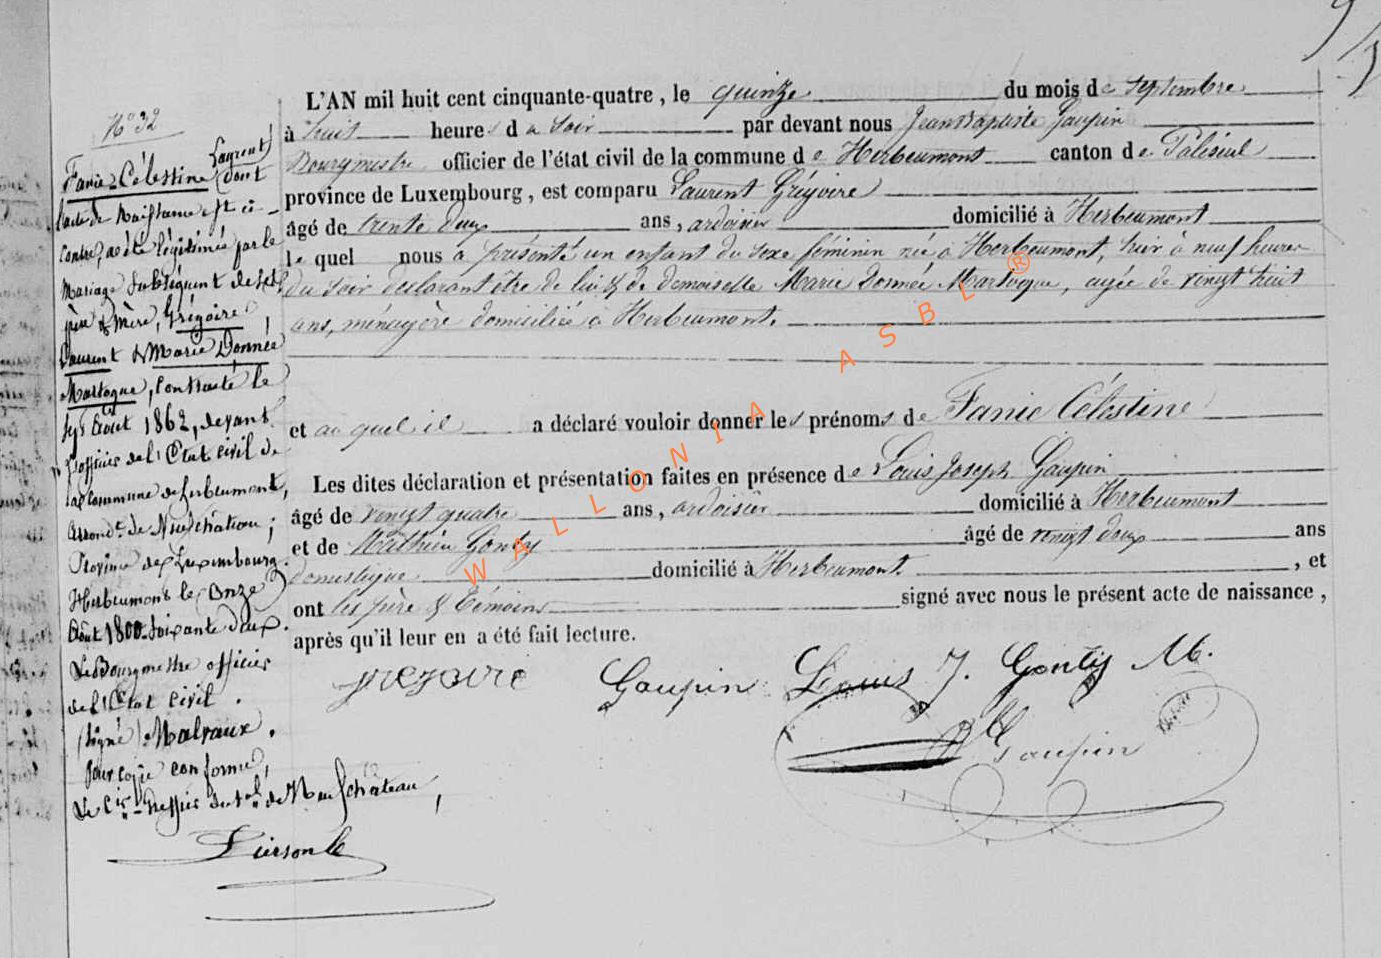 N° 32
Fanie Célestine Laurent
(dont
l'acte de Naissance est ci-
contre, a été légitimée par le
Mariage subséquent de ses
père & mère, Grégoire
Laurent & Marie Donnée
Martogne, contracté le
sept Août 1862, devant
l'officier de l'Etat civil de
la commune de herbeumont,
Arrondt. de Neufchâteau;
Province de Luxembourg.
Herbeumont le Onze
Août 1800-soixante deux.
Le Bourgmestre officier
de l'Etat civil.
(signé) Malvaux.
Pour copie conforme,
de Neufchateau,
Pierson
L'AN mil huit cent cinquante-quatre, le quinze du mois de Septembre
à huit heures du soir par devant nous Jean Baptiste Gaupin
Bourgmestre officier de l'état civil de la commune de Herbeumont canton de Paliseul
province de Luxembourg, est comparu Laurent Grégoire
âgé de trente deux ans, ardoisier domicilié à Herbeumont
le quel nous a présenté un enfant du sexe féminin née à Herbeumont, hier à neuf heures
du soir déclarant être de lui & de demoiselle Marie Donnée Martogne, agée de vingt huit
ans, ménagère domiciliée à Herbeumont.
et au quel il a déclaré vouloir donner les prénoms de Fanie Célestine
Les dites déclaration et présentation faites en présence de Louis Joseph Gaupin
âgé de vingt quatre ans, ardoisier domicilié à Herbeumont
et de Mathieu Gonty âgé de vingt deux ans
domestique domicilié à Herbeumont. , et
ont les père & témoins signé avec nous le présent acte de naissance,
après qu'il leur en a été fait lecture.
gregoire Gaupin Louis J. Gonty M.
JB Gaupin
WALLONIA ASBL ®